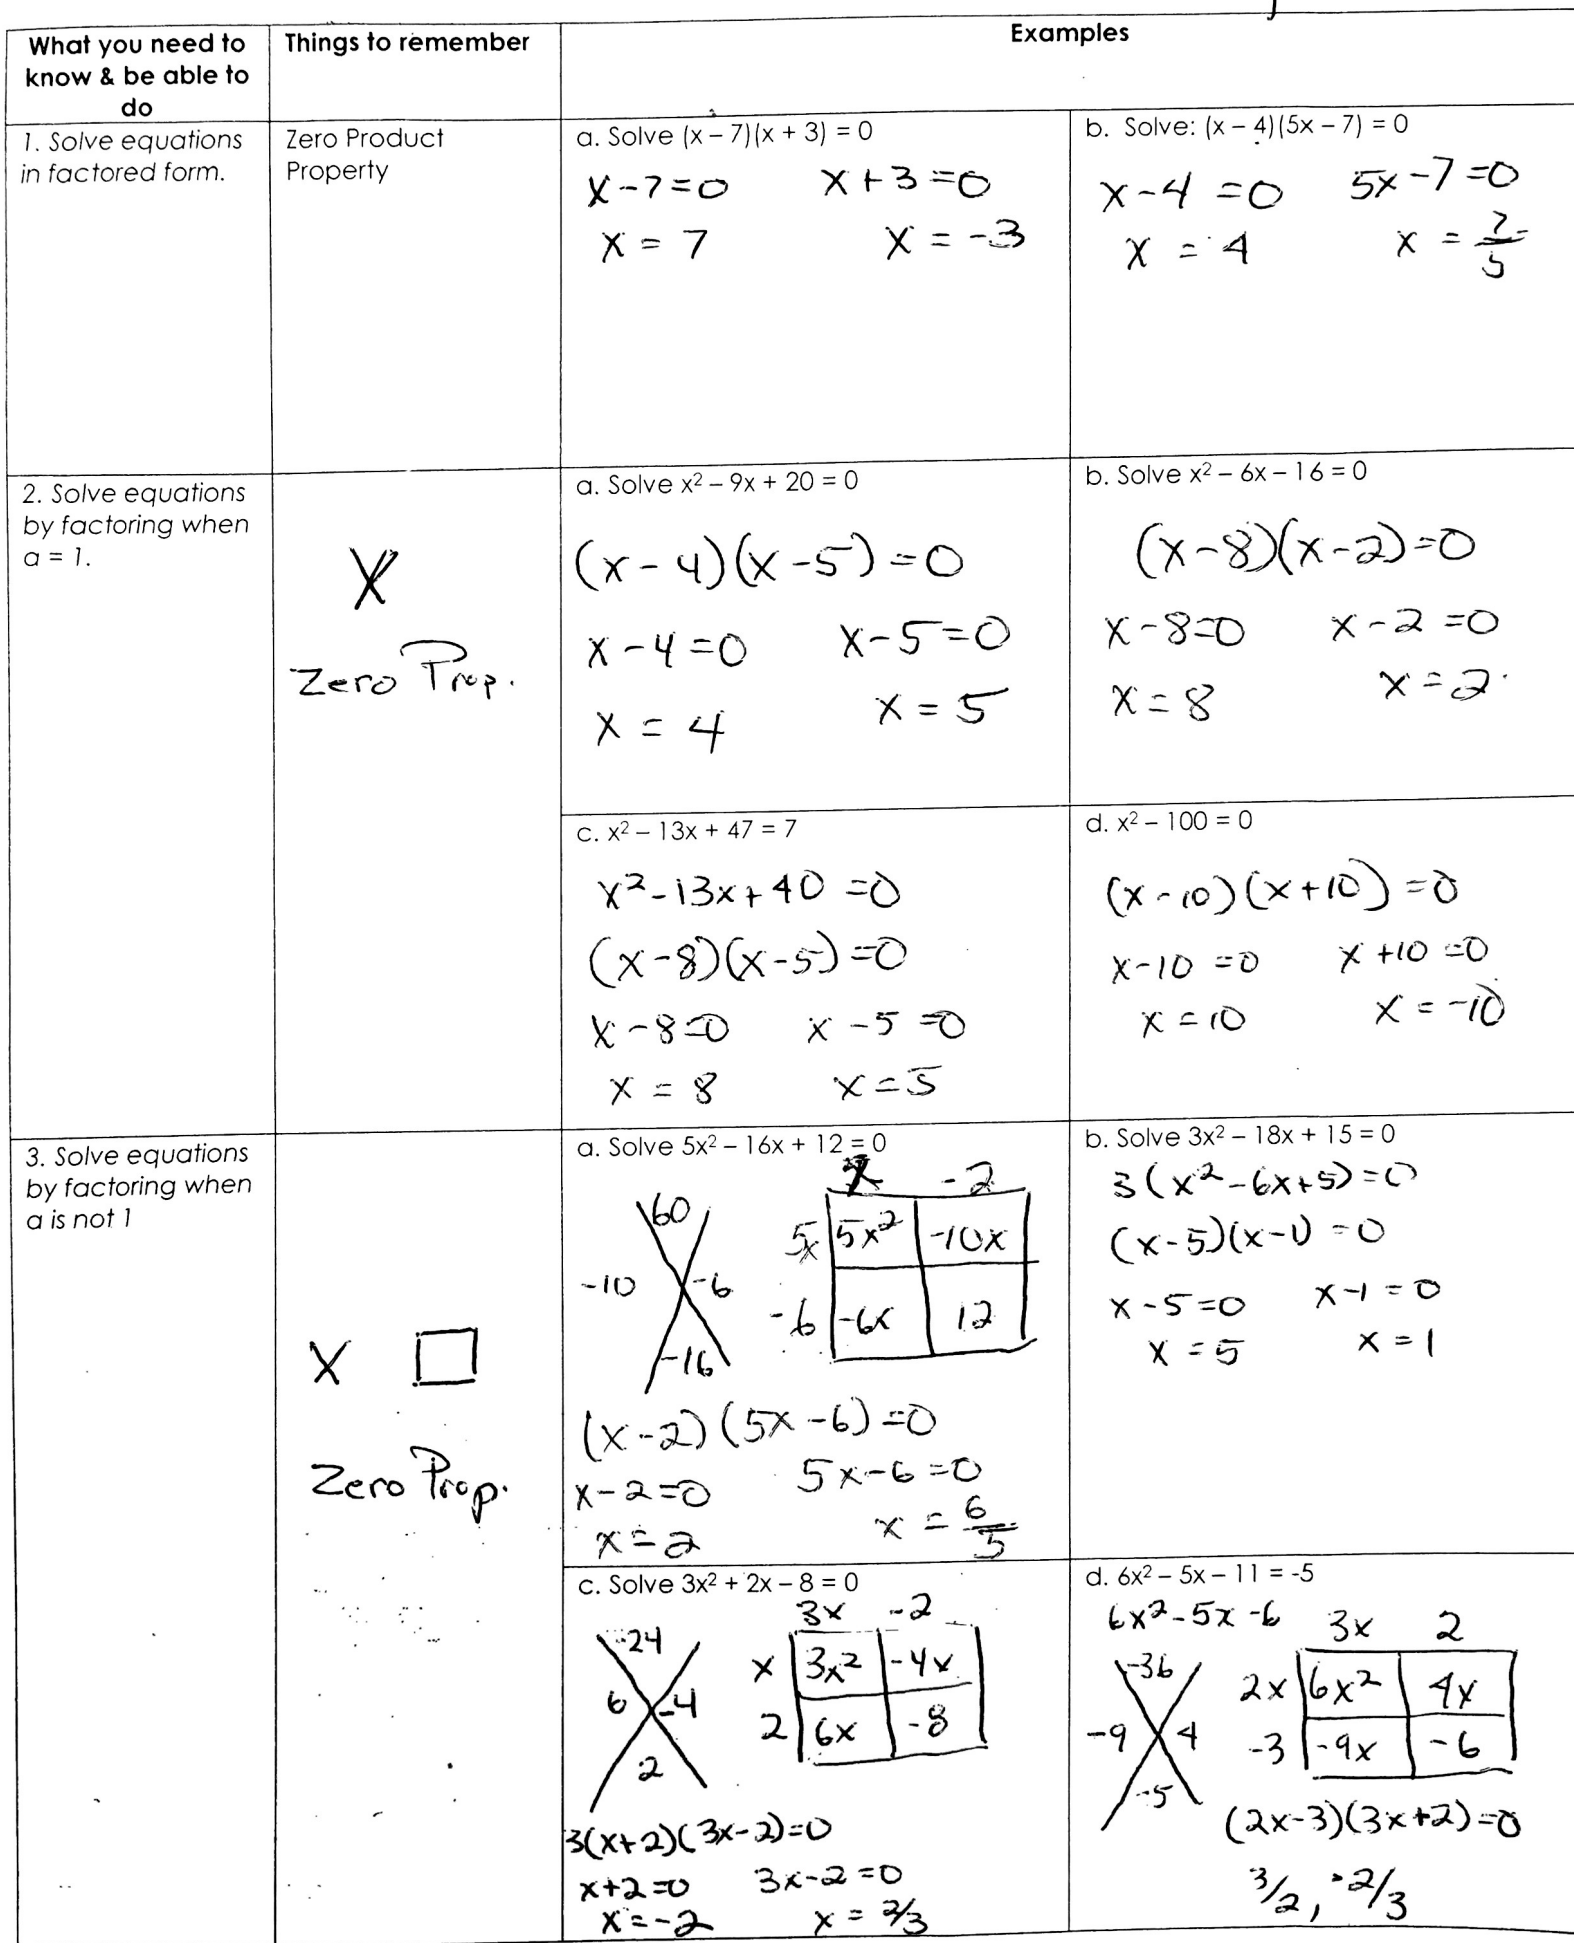 What you need to know & be able to do
Things to remember
Examples
1. Solve equations in factored form.
Zero Product Property
a. Solve (x – 7)(x + 3) = 0
x-7=0 x+3=0
x = 7 x = -3
b. Solve: (x – 4)(5x – 7) = 0
x-4 =0 5x-7=0
x = 4 x = 7/5
2. Solve equations by factoring when a = 1.
X
Zero Prop.
a. Solve x² – 9x + 20 = 0
(x-4)(x-5)=0
x-4=0 x-5=0
x = 4 x = 5
b. Solve x² – 6x – 16 = 0
(x-8)(x-2)=0
x-8=0 x-2=0
x=8 x=2
c. x² – 13x + 47 = 7
x²-13x+40 =0
(x-8)(x-5)=0
x-8=0 x-5=0
x = 8 x=5
d. x² – 100 = 0
(x-10)(x+10)=0
x-10=0 x+10=0
x=10 x=-10
3. Solve equations by factoring when a is not 1
X □
Zero Prop.
a. Solve 5x² – 16x + 12 = 0
x -2
60
5x 5x² -10x
-10 -6
-6 -6x 12
-16
(x-2)(5x-6)=0
x-2=0 5x-6=0
x=2 x = 6/5
b. Solve 3x² – 18x + 15 = 0
3(x²-6x+5)=0
(x-5)(x-1)=0
x-5=0 x-1=0
x=5 x=1
c. Solve 3x² + 2x – 8 = 0
3x -2
-24
x 3x² -4x
6 -4
2 6x -8
2
3(x+2)(3x-2)=0
x+2=0 3x-2=0
x=-2 x = 2/3
d. 6x² – 5x – 11 = -5
6x²-5x-6
3x 2
-36
2x 6x² 4x
-9 4
-3 -9x -6
-5
(2x-3)(3x+2)=0
3/2, -2/3